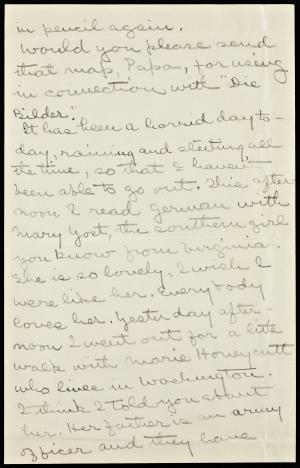 in pencil again.
Would you please send
that map, Papa, for using
in connection with "Die
Bilder."
It has been a horrid day to-
day, raining and sleeting all
the time, so that I haven't
been able to go out. This after-
noon I read German with
Mary Yost, the southern girl
you know from Virginia.
She is so lovely, I wish I
were like her. Everybody
loves her. Yesterday after-
noon I went out for a little
walk with Marie Honeycutt
who lives in Washington.
I think I told you about
her. Her father is an army
officer and they have